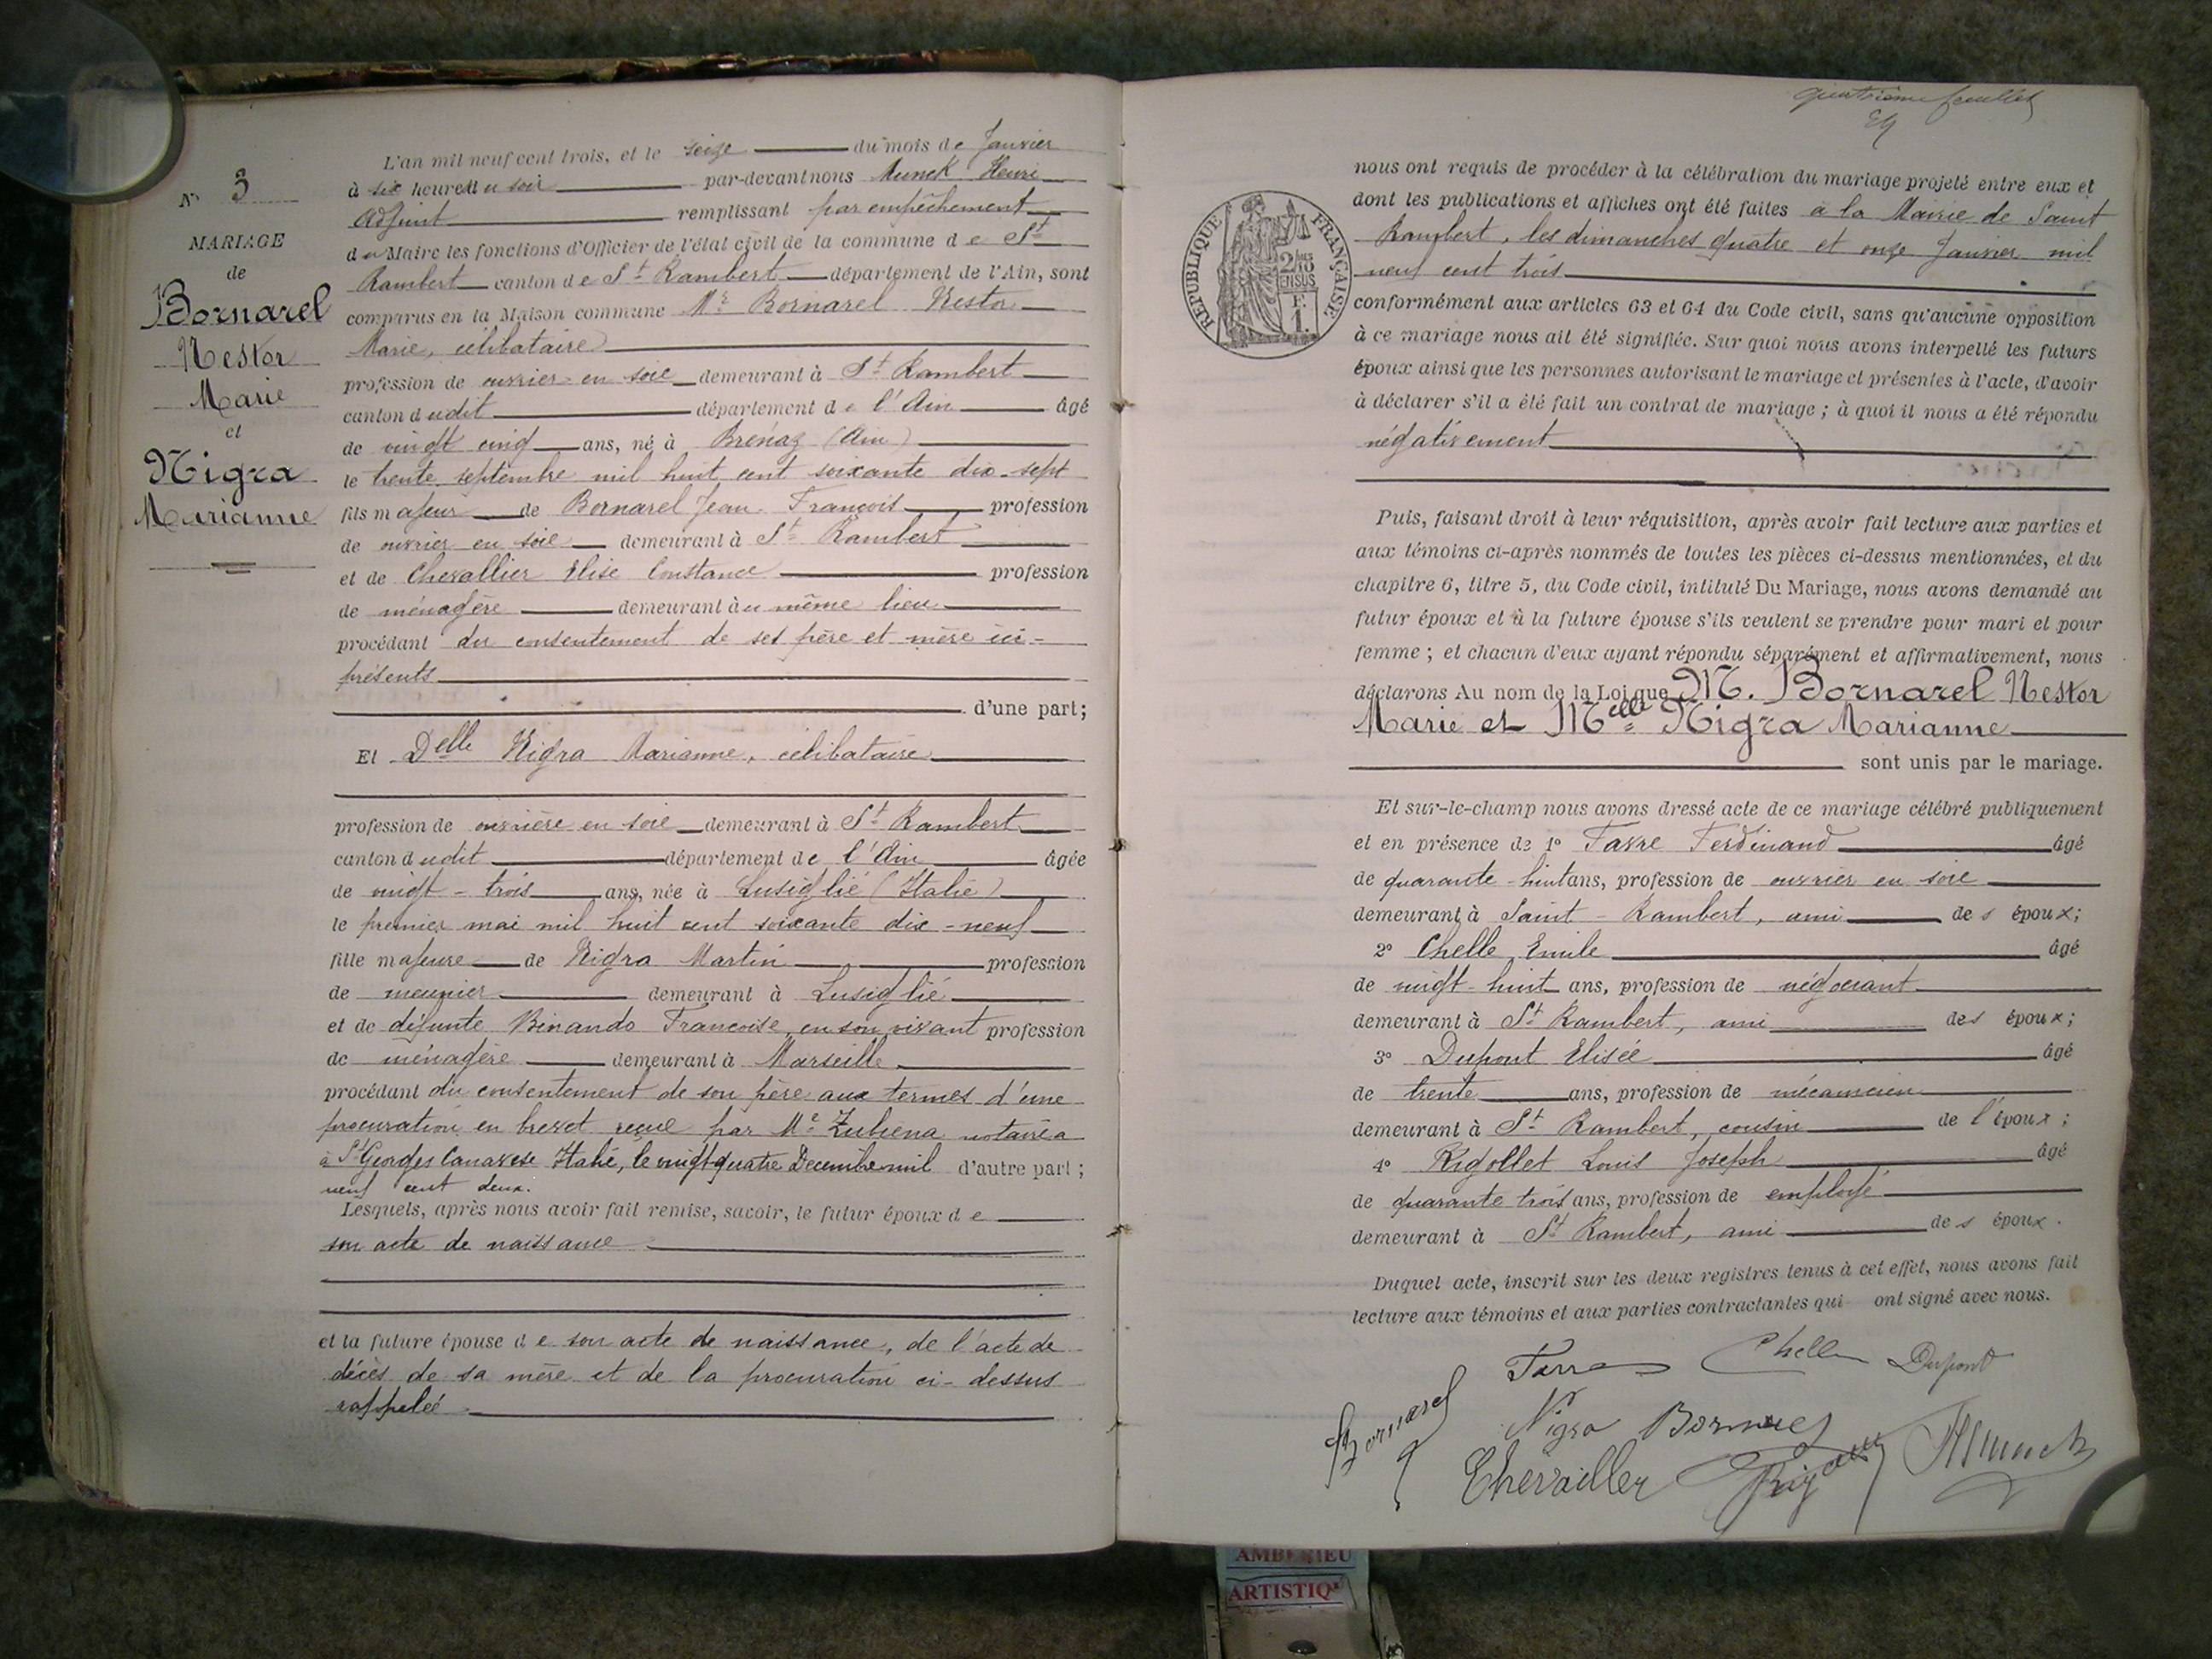 N° 3
MARIAGE
de
Bornarel
Nestor
Marie
et
Nigra
Marianne
L'an mil neuf cent trois, et le seize du mois de Janvier
à six heures du soir par-devant nous Munck Henri
Adjoint remplissant par empêchement
du Maire les fonctions d'Officier de l'état civil de la commune de St
Rambert canton de St Rambert département de l'Ain, sont
comparus en la Maison commune Mr Bornarel Nestor
Marie, célibataire
profession de ouvrier en soie demeurant à St Rambert
canton dudit département de l'Ain âgé
de vingt cinq ans, né à Brénaz (Ain)
le trente septembre mil huit cent soixante dix-sept
fils majeur de Bornarel Jean François profession
de ouvrier en soie demeurant à St Rambert
et de Chevallier Elise Constance profession
de ménagère demeurant au même lieu
procédant du consentement de ses père et mère ici-
présents
d'une part;
Et Delle Nigra Marianne, célibataire
profession de ouvrière en soie demeurant à St Rambert
canton dudit département de l'Ain âgée
de vingt-trois ans, née à Lusiglié (Italie)
le premier mai mil huit cent soixante dix-neuf
fille majeure de Nigra Martin profession
de meunier demeurant à Lusiglié
et de défunte Binando Francoise, en son vivant profession
de ménagère demeurant à Marseille
procédant du consentement de son père aux termes d'une
procuration en brevet reçue par Me Zubena notaire a
à St Georges Canavese Italie, le vingt quatre Decembre mil d'autre part;
neuf cent deux.
Lesquels, après nous avoir fait remise, savoir, le futur époux de
son acte de naissance
et la future épouse de son acte de naissance, de l'acte de
décès de sa mère et de la procuration ci-dessus
rappelée
quatrième feuillet
RÉPUBLIQUE FRANÇAISE
2/10
EN SUS
F.
1.
nous ont requis de procéder à la célébration du mariage projeté entre eux et
dont les publications et affiches ont été faites à la Mairie de Saint
Rambert, les dimanches quatre et onze Janvier mil
neuf cent trois
conformément aux articles 63 et 64 du Code civil, sans qu'aucune opposition
à ce mariage nous ait été signifiée. Sur quoi nous avons interpellé les futurs
époux ainsi que les personnes autorisant le mariage et présentes à l'acte, d'avoir
à déclarer s'il a été fait un contrat de mariage; à quoi il nous a été répondu
négativement
Puis, faisant droit à leur réquisition, après avoir fait lecture aux parties et
aux témoins ci-après nommés de toutes les pièces ci-dessus mentionnées, et du
chapitre 6, titre 5, du Code civil, intitulé Du Mariage, nous avons demandé au
futur époux et à la future épouse s'ils veulent se prendre pour mari et pour
femme; et chacun d'eux ayant répondu séparément et affirmativement, nous
déclarons Au nom de la Loi que M. Bornarel Nestor
Marie et Melle Nigra Marianne
sont unis par le mariage.
Et sur-le-champ nous avons dressé acte de ce mariage célébré publiquement
et en présence de 1° Favre Ferdinand âgé
de quarante-huit ans, profession de ouvrier en soie
demeurant à Saint-Rambert, ami des époux;
2° Chelle Emile âgé
de vingt-huit ans, profession de négociant
demeurant à St Rambert, ami des époux;
3° Dupont Elisée âgé
de trente ans, profession de mécanicien
demeurant à St Rambert, cousin de l'époux;
4° Rigollet Louis Joseph âgé
de quarante trois ans, profession de employé
demeurant à St Rambert, ami des époux.
Duquel acte, inscrit sur les deux registres tenus à cet effet, nous avons fait
lecture aux témoins et aux parties contractantes qui ont signé avec nous.
Chelle Dupont
Bornarel Nigra Bornarel
HMunck
AMBERIEU
ARTISTIQ